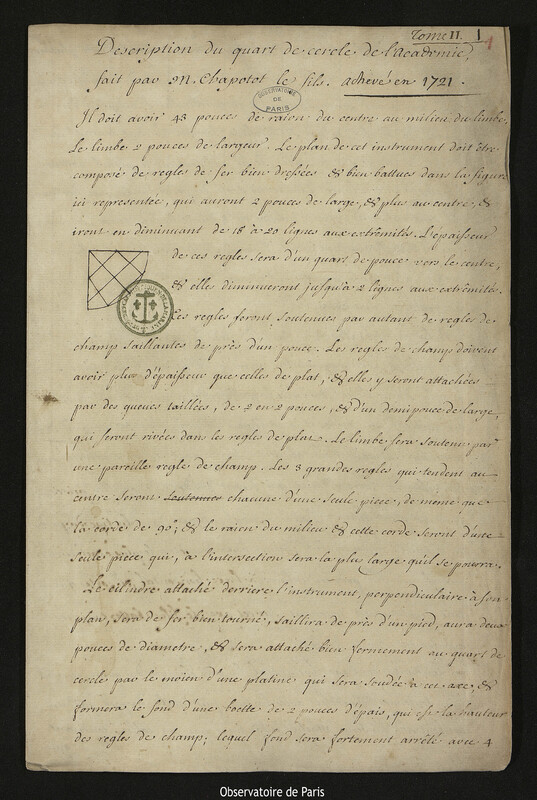 Tome II. 1
Description du quart de cercle de l'academie,
fait par M. Chapotot le fils. achevé en 1721.
OBSERVATOIRE DE PARIS
Il doit avoir 43 pouces de raion du centre au milieu du limbe.
Le limbe 2 pouces de largeur. Le plan de cet instrument doit être
composé de regles de fer bien dressées & bien battues dans la figure
ici representée, qui auront 2 pouces de large, & plus au centre, &
iront en diminuant de 18 à 20 lignes aux extrêmités. L'epaisseur
de ces regles sera d'un quart de pouce vers le centre,
& elles diminueront jusqu'à 2 lignes aux extrêmités.
Ces regles seront soutenues par autant de regles de
champ saillantes de près d'un pouce. Les regles de champ doivent
avoir plus d'épaisseur que celles de plat, & elles y seront attachées
par des queues taillées, de 2 en 2 pouces, & d'un demi pouce de large,
qui seront rivées dans les regles de plat. Le limbe sera soutenu par
une pareille regle de champ. Les 3 grandes regles qui tendent au
centre seront soutenues chacune d'une seule piece, de même que
la corde de 90°; & le raion du milieu & cette corde seront d'une
seule piece qui, à l'intersection sera la plus large qu'il se pourra.
Le cilindre attaché derriere l'instrument, perpendiculaire à son
plan, sera de fer bien tourné, saillira de près d'un pied, aura deux
pouces de diametre, & sera attaché bien fermement au quart de
cercle par le moien d'une platine qui sera soudée à cet axe, &
formera le fond d'une boette de 2 pouces d'épais, qui est la hauteur
des regles de champ; lequel fond sera fortement arrêté avec 4
Observatoire de Paris